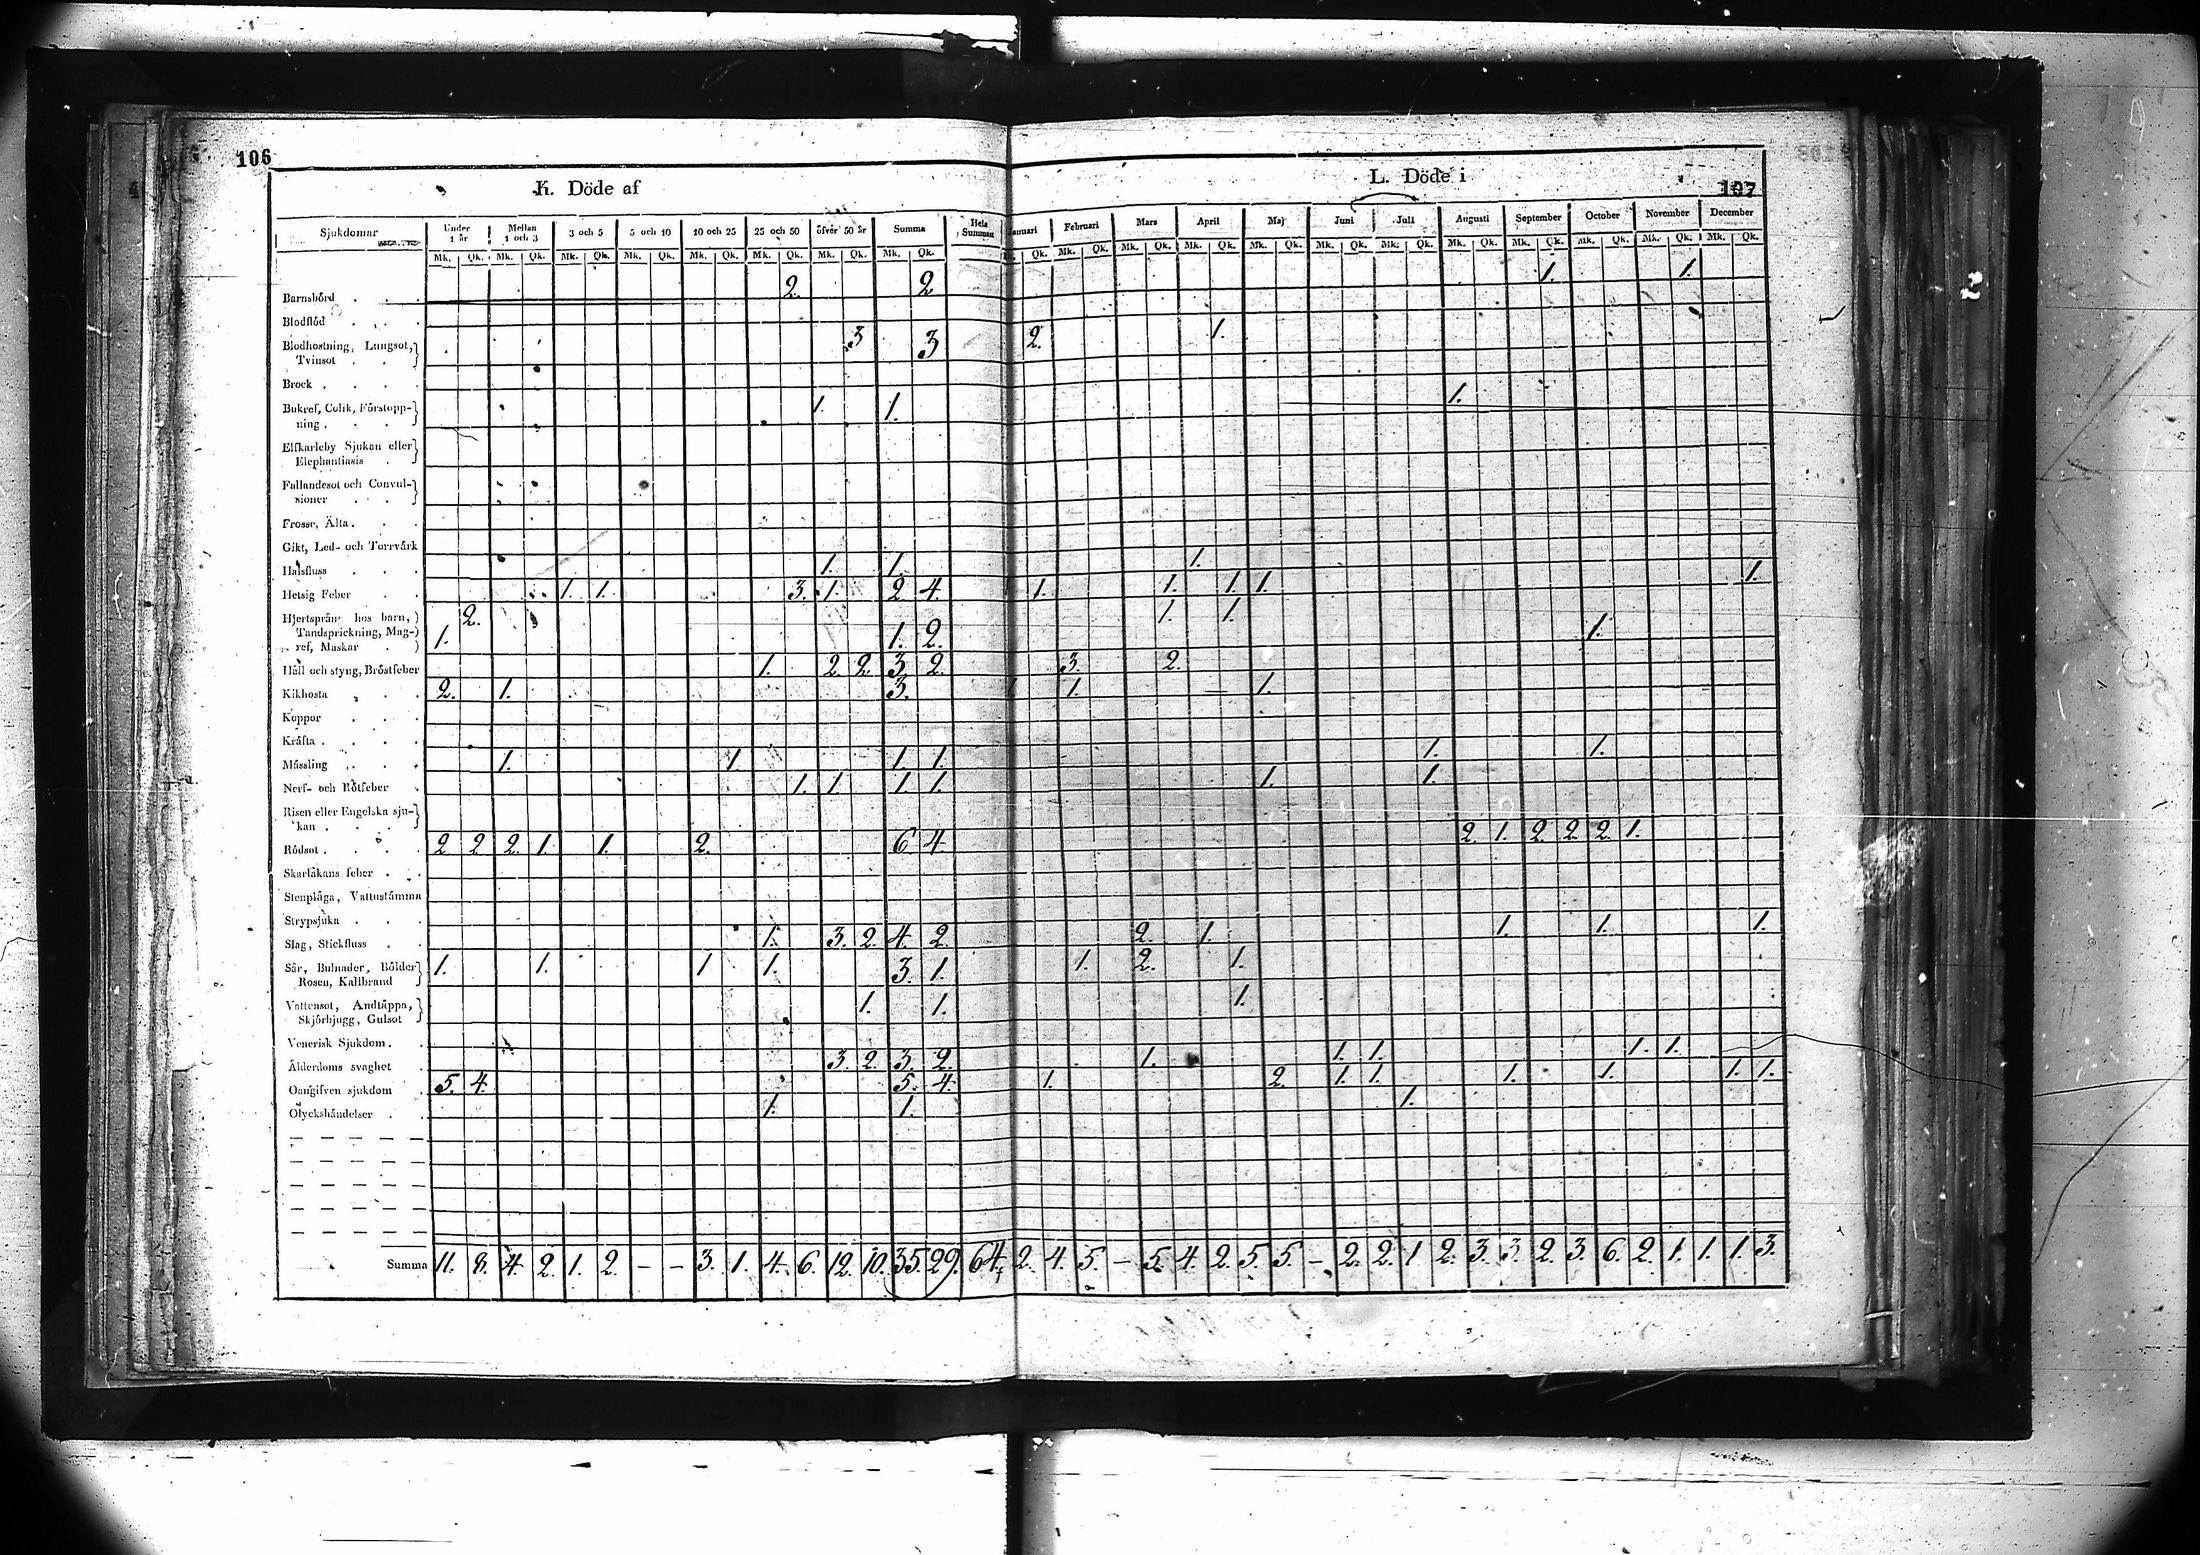 106
K. Döde af
L. Döde i
107
Sjukdomar Under 1 år Mellan 1 och 3 3 och 5 5 och 10 10 och 25 25 och 50 öfver 50 år Summa Hela Summan Januari Februari Mars April Maj Juni Juli Augusti September October November December
Mk. Qk. Mk. Qk. Mk. Qk. Mk. Qk. Mk. Qk. Mk. Qk. Mk. Qk. Mk. Qk. Qk. Mk. Qk. Mk. Qk. Mk. Qk. Mk. Qk. Mk. Qk. Mk. Qk. Mk. Qk. Mk. Qk. Mk. Qk. Mk. Qk. Mk. Qk.
Barnsbörd . . . 2. 2 1. 1.
Blodflöd . . .
Blodhostning, Lungsot, 3 3 2. 1.
Tvinsot . .
Brock . . . .
Bukref, Colik, Förstopp- 1. 1. 1.
ning . . .
Elfkarleby Sjukan eller
Elephantiasis .
Fallandesot och Convul-
sioner . . .
Frossa, Älta . . .
Gikt, Led- och Torrvärk
Halsfluss . . . 1. 1. 1.
Hetsig Feber . . 1. 1. 3. 1. 2 4. 1. 1. 1. 1. 1.
Hjertsprång hos barn, 2. 1. 1.
Tandsprickning, Mag- 1. 1. 2. 1.
ref, Maskar .
Håll och styng, Bröstfeber 1. 2. 2. 3. 2. 3. 2.
Kikhosta . . . 2. 1. 3. 1. 1.
Koppor . . .
Kräfta . . . .
Mässling . . . 1. 1. 1. 1. 1. 1.
Nerf- och Rötfeber . 1. 1. 1. 1. 1. 1.
Risen eller Engelska sju-
kan . . .
Rödsot . . . . 2 2 2. 1. 1. 2. 6. 4. 2. 1. 2. 2. 2. 1.
Skarlakans feber . .
Stenplåga, Vattustämma
Strypsjuka . . .
Slag, Stickfluss . . 1. 3. 2. 4. 2. 2. 1. 1. 1. 1.
Sår, Bulnader, Bölder 1. 1. 1 1. 3. 1. 1. 2. 1.
Rosen, Kallbrand
Vattensot, Andtäppa, 1. 1. 1.
Skjörbjugg, Gulsot
Venerisk Sjukdom . .
Ålderdoms svaghet . 3. 2. 3. 2. 1. 1. 1. 1. 1.
Oangifven sjukdom . 5. 4. 5. 4. 1. 2. 1. 1. 1. 1. 1. 1.
Olyckshändelser . . 1. 1. 1.
Summa 11. 8. 4. 2. 1. 2. - - 3. 1. 4. 6. 12. 10. 35. 29. 64. 2. 4. 5. - 5. 4. 2. 5. 5. - 2. 2. 1 2. 3. 3. 2. 3. 6. 2. 1. 1. 1. 3.